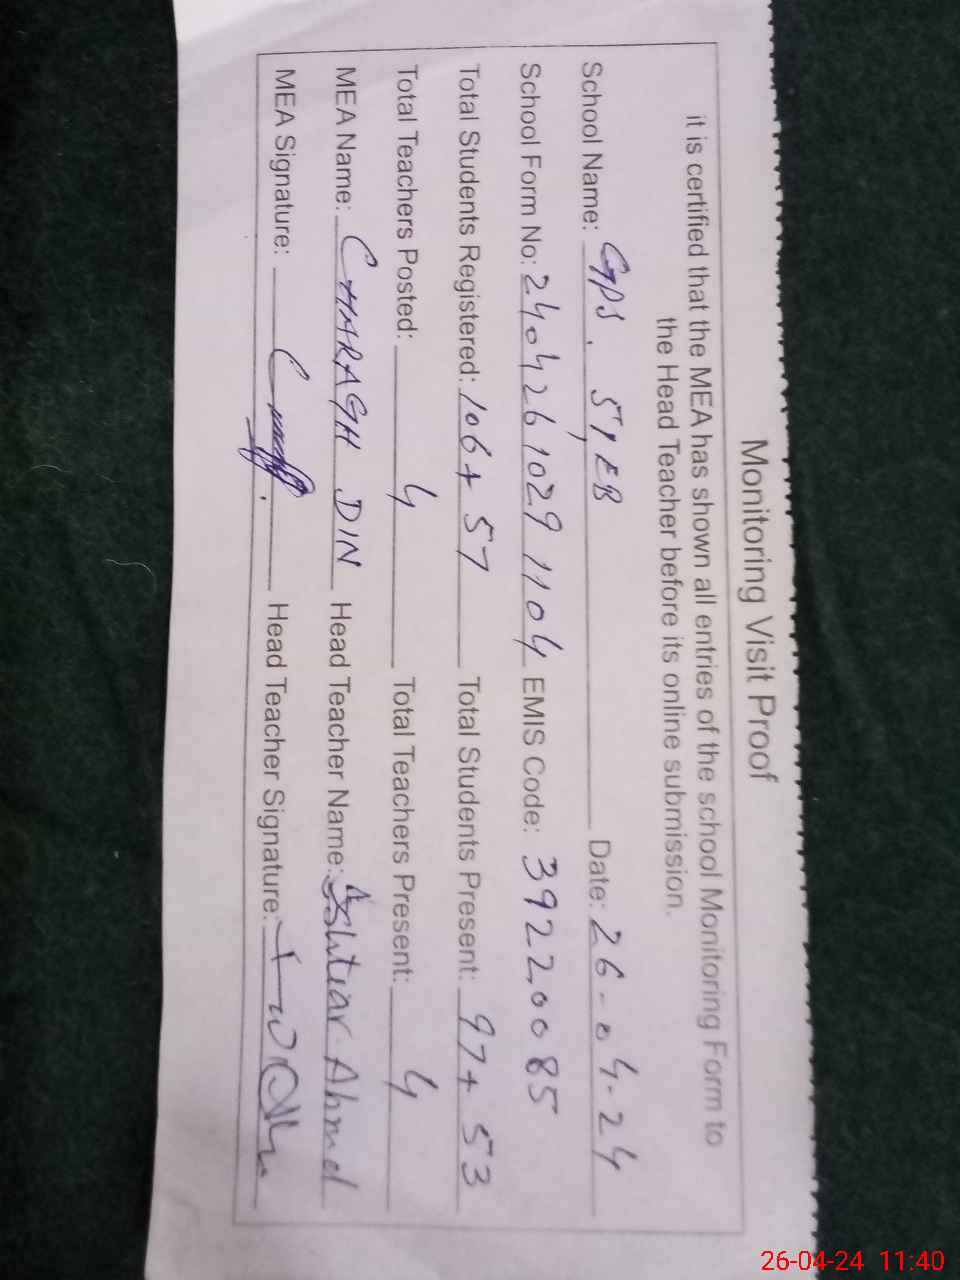 Monitoring Visit Proof
it is certified that the MEA has shown all entries of the school Monitoring Form to
the Head Teacher before its online submission.
School Name: GPS. 5/EB Date: 26-04-24
School Form No: 24042610291104 EMIS Code: 39220085
Total Students Registered: 106+57 Total Students Present: 97+53
Total Teachers Posted: 4 Total Teachers Present: 4
MEA Name: CHARAGH DIN Head Teacher Name: Ahmd
MEA Signature: Head Teacher Signature:
26-04-24 11:40